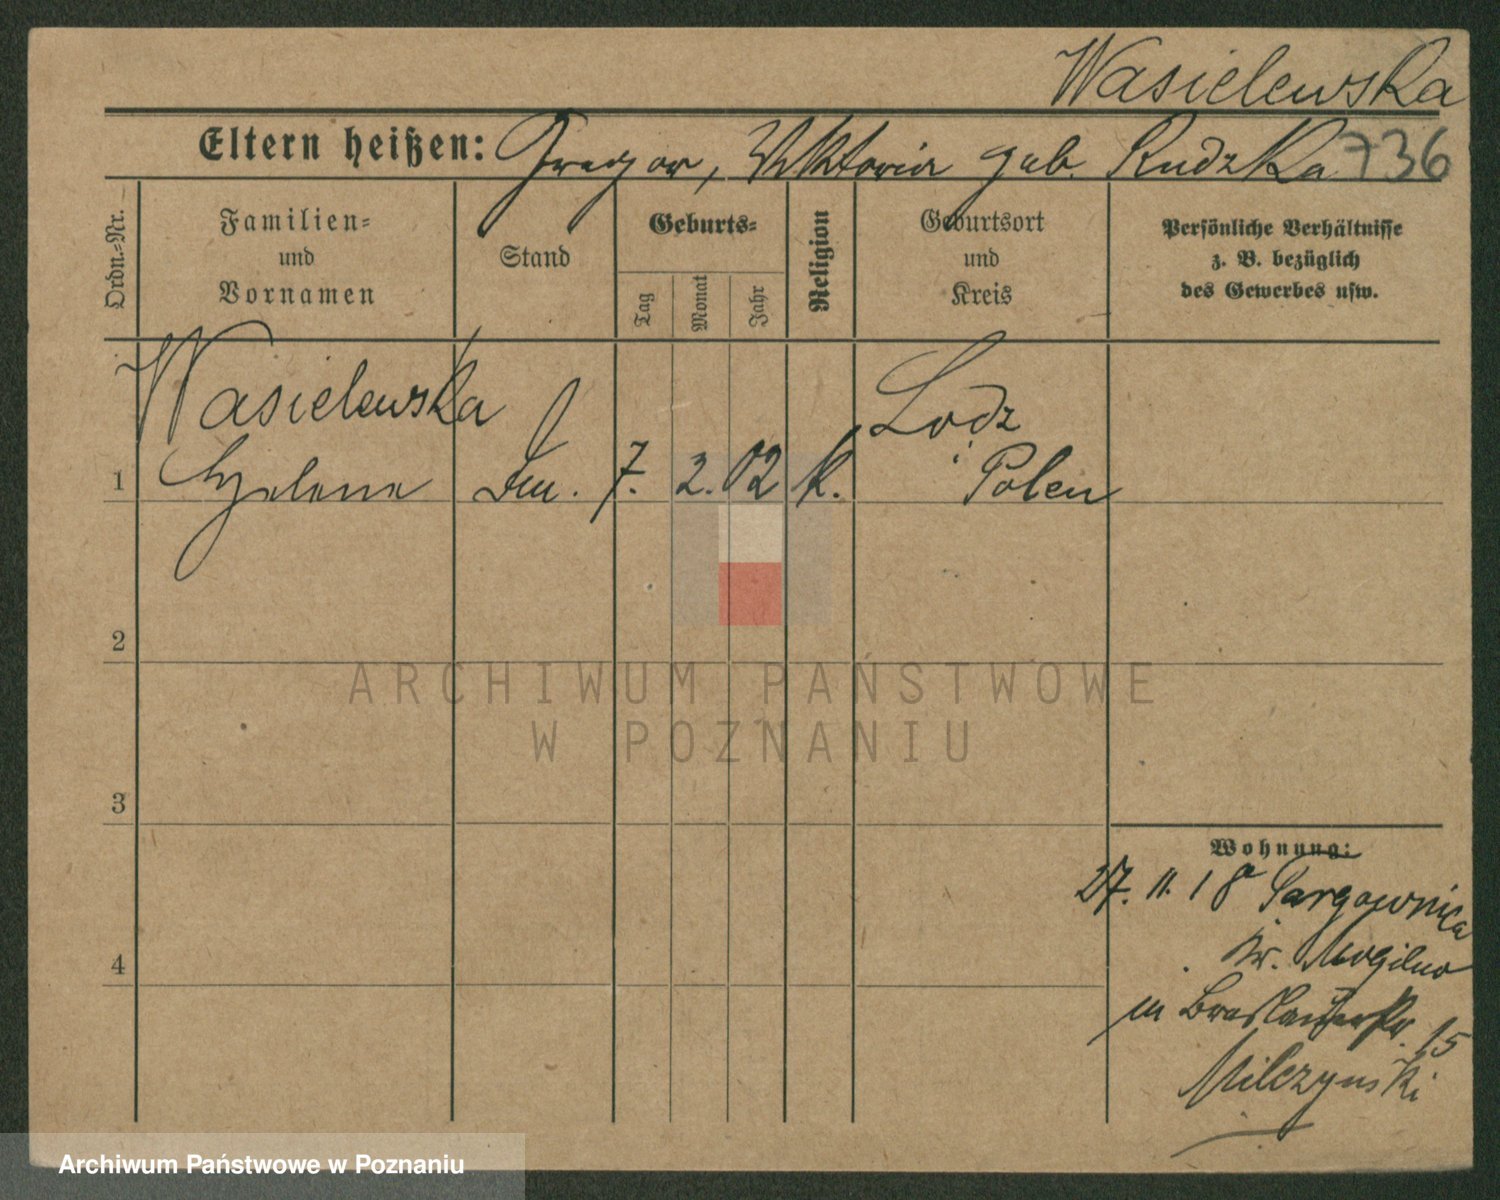 Wasielewska
Eltern heißen: Gregor, Viktoria geb. Rudzka 736
Ordn.-Nr.
Familien-
und
Vornamen
Stand
Geburts-
Tag
Monat
Jahr
Religion
Geburtsort
und
Kreis
Persönliche Verhältnisse
z. B. bezüglich
des Gewerbes usw.
Wasielewska Lodz
1 Helene 7. 2. 02 k. Polen
2
ARCHIWUM PAŃSTWOWE
W POZNANIU
3
Wohnung:
27. 11. 18 Targownica
4 Kr. Mogilno
in Breslauerstr. 15
Milczynski
Archiwum Państwowe w Poznaniu